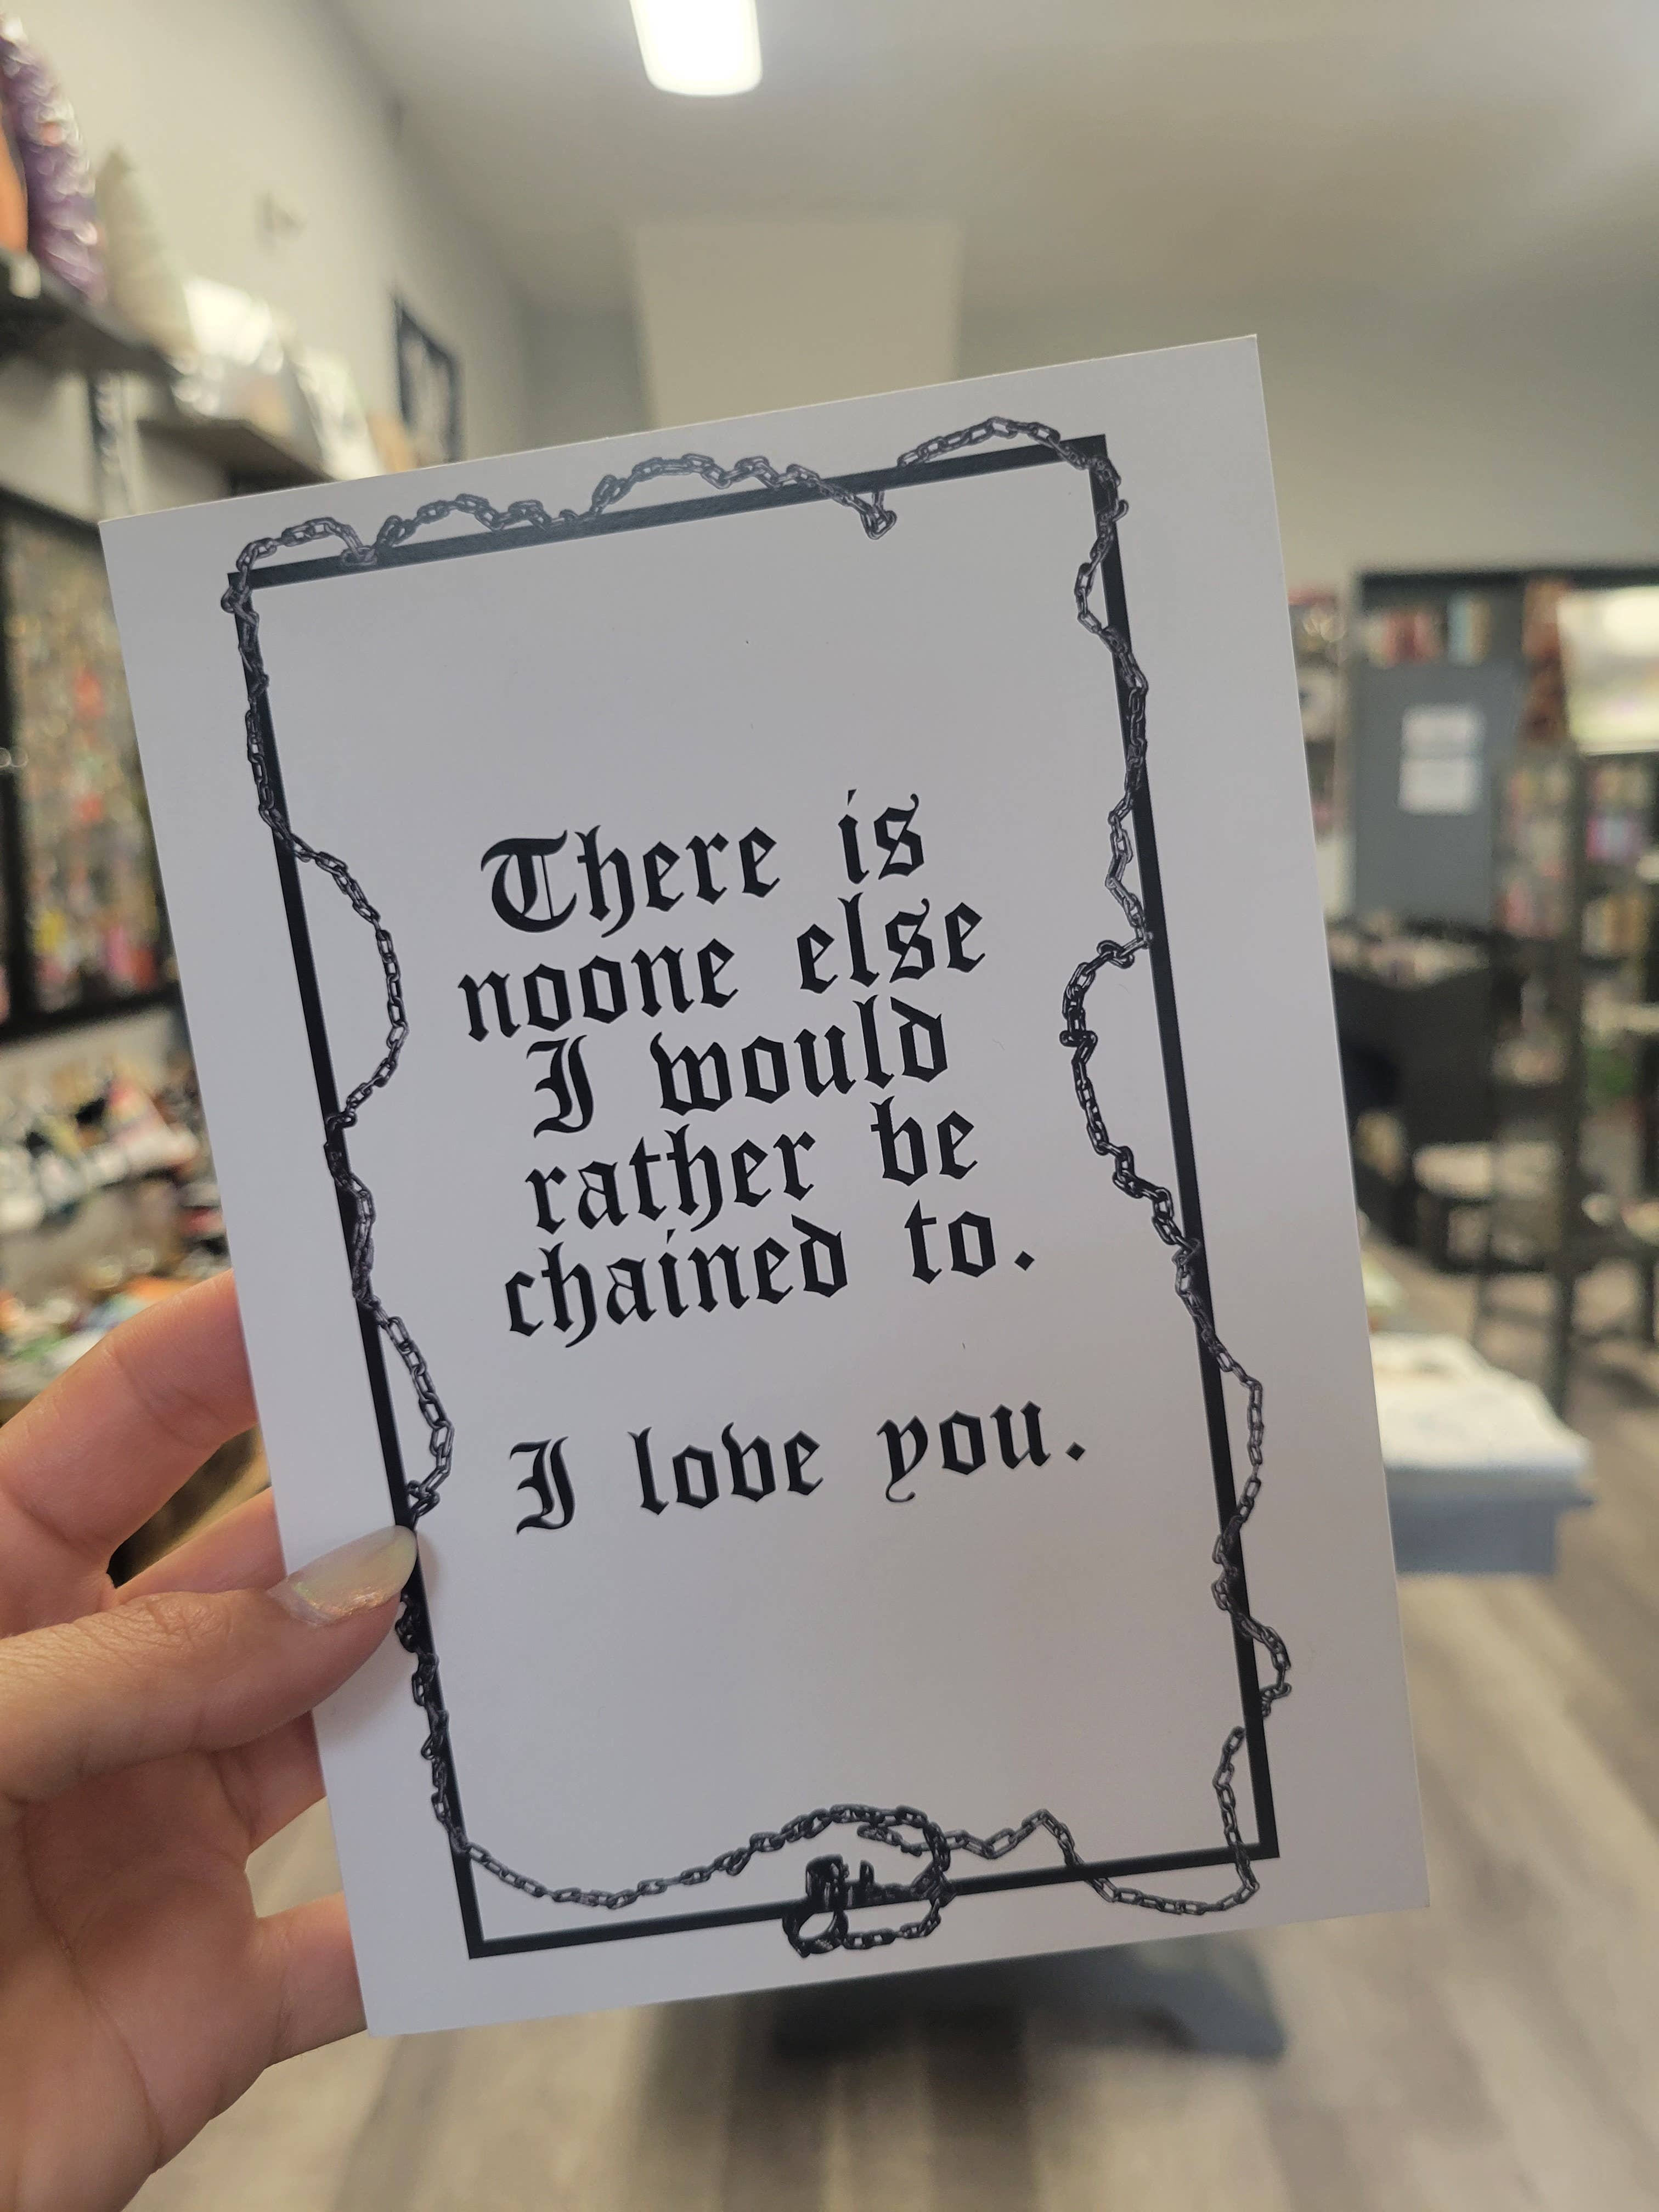 There is
noone else
I would
rather be
chained to.
I love you.